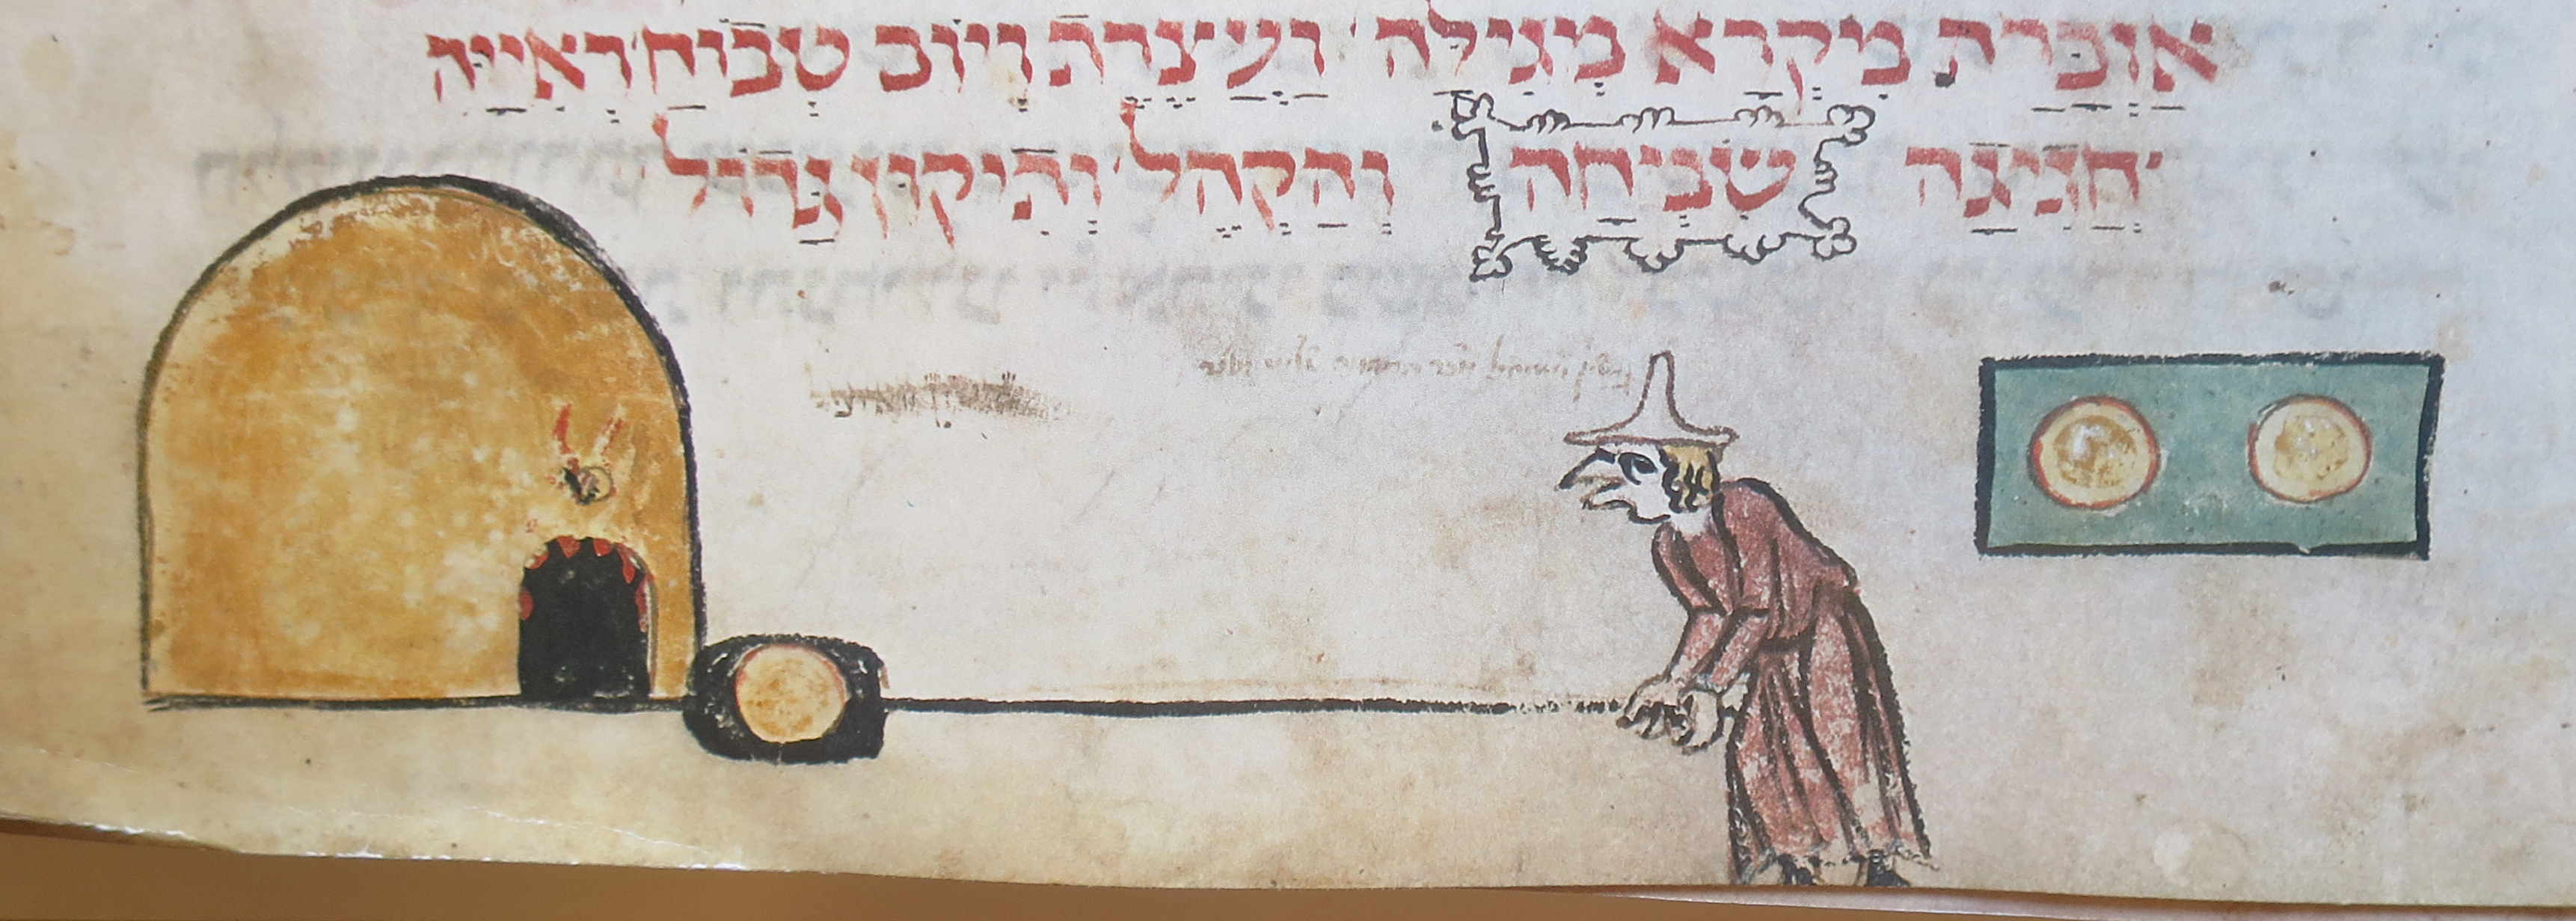 אַזְכָּרַת מִקְרָא מְגִילָּה וַעֲצֶרֶת וְיוֹם טְבוֹחַ רְאִיַּיה
חֲגִיגָה שִׂמְחָה וְהַקְהֵל וְתִיקּוּן גָּדוֹל